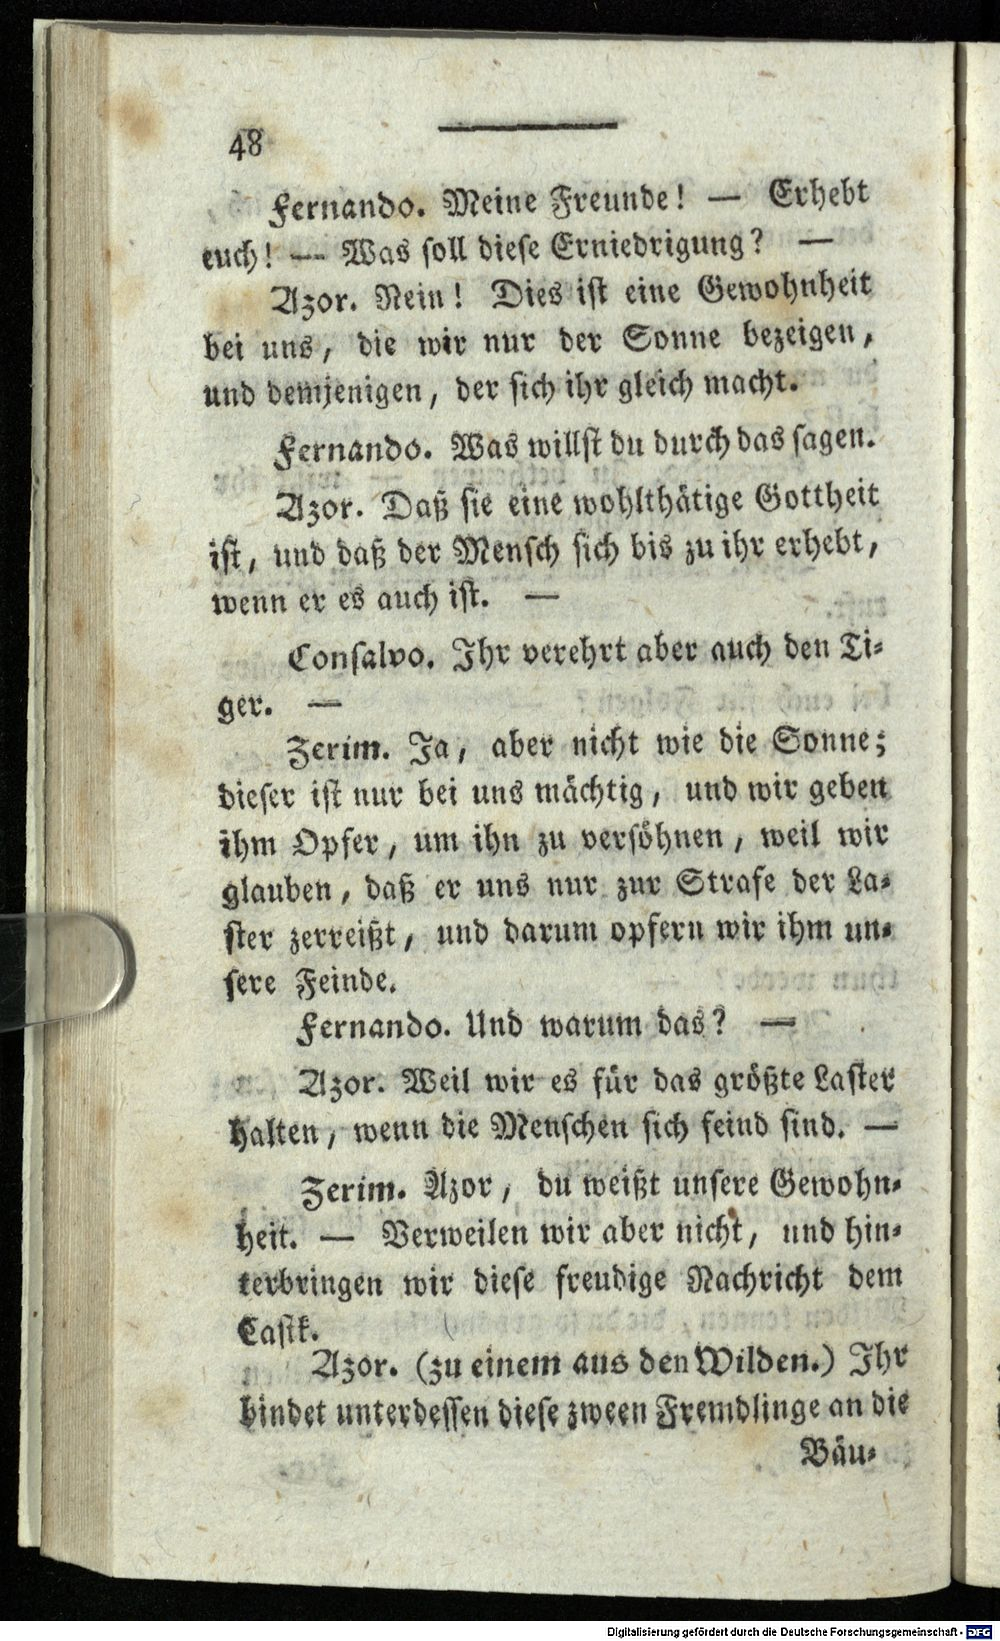 48
Fernando. Meine Freunde! — Erhebt
euch! — Was soll diese Erniedrigung? —
Azor. Nein! Dies ist eine Gewohnheit
bei uns, die wir nur der Sonne bezeigen,
und demjenigen, der sich ihr gleich macht.
Fernando. Was willst du durch das sagen.
Azor. Daß sie eine wohlthätige Gottheit
ist, und daß der Mensch sich bis zu ihr erhebt,
wenn er es auch ist. —
Consalvo. Ihr verehrt aber auch den Ti-
ger. —
Zerim. Ja, aber nicht wie die Sonne;
dieser ist nur bei uns mächtig, und wir geben
ihm Opfer, um ihn zu versöhnen, weil wir
glauben, daß er uns nur zur Strafe der La-
ster zerreißt, und darum opfern wir ihm un-
sere Feinde.
Fernando. Und warum das? —
Azor. Weil wir es für das größte Laster
halten, wenn die Menschen sich feind sind. —
Zerim. Azor, du weißt unsere Gewohn-
heit. — Verweilen wir aber nicht, und hin-
terbringen wir diese freudige Nachricht dem
Castk.
Azor. (zu einem aus den Wilden.) Ihr
bindet unterdessen diese zween Fremdlinge an die
Bäu-
Digitalisierung gefördert durch die Deutsche Forschungsgemeinschaft - DFG